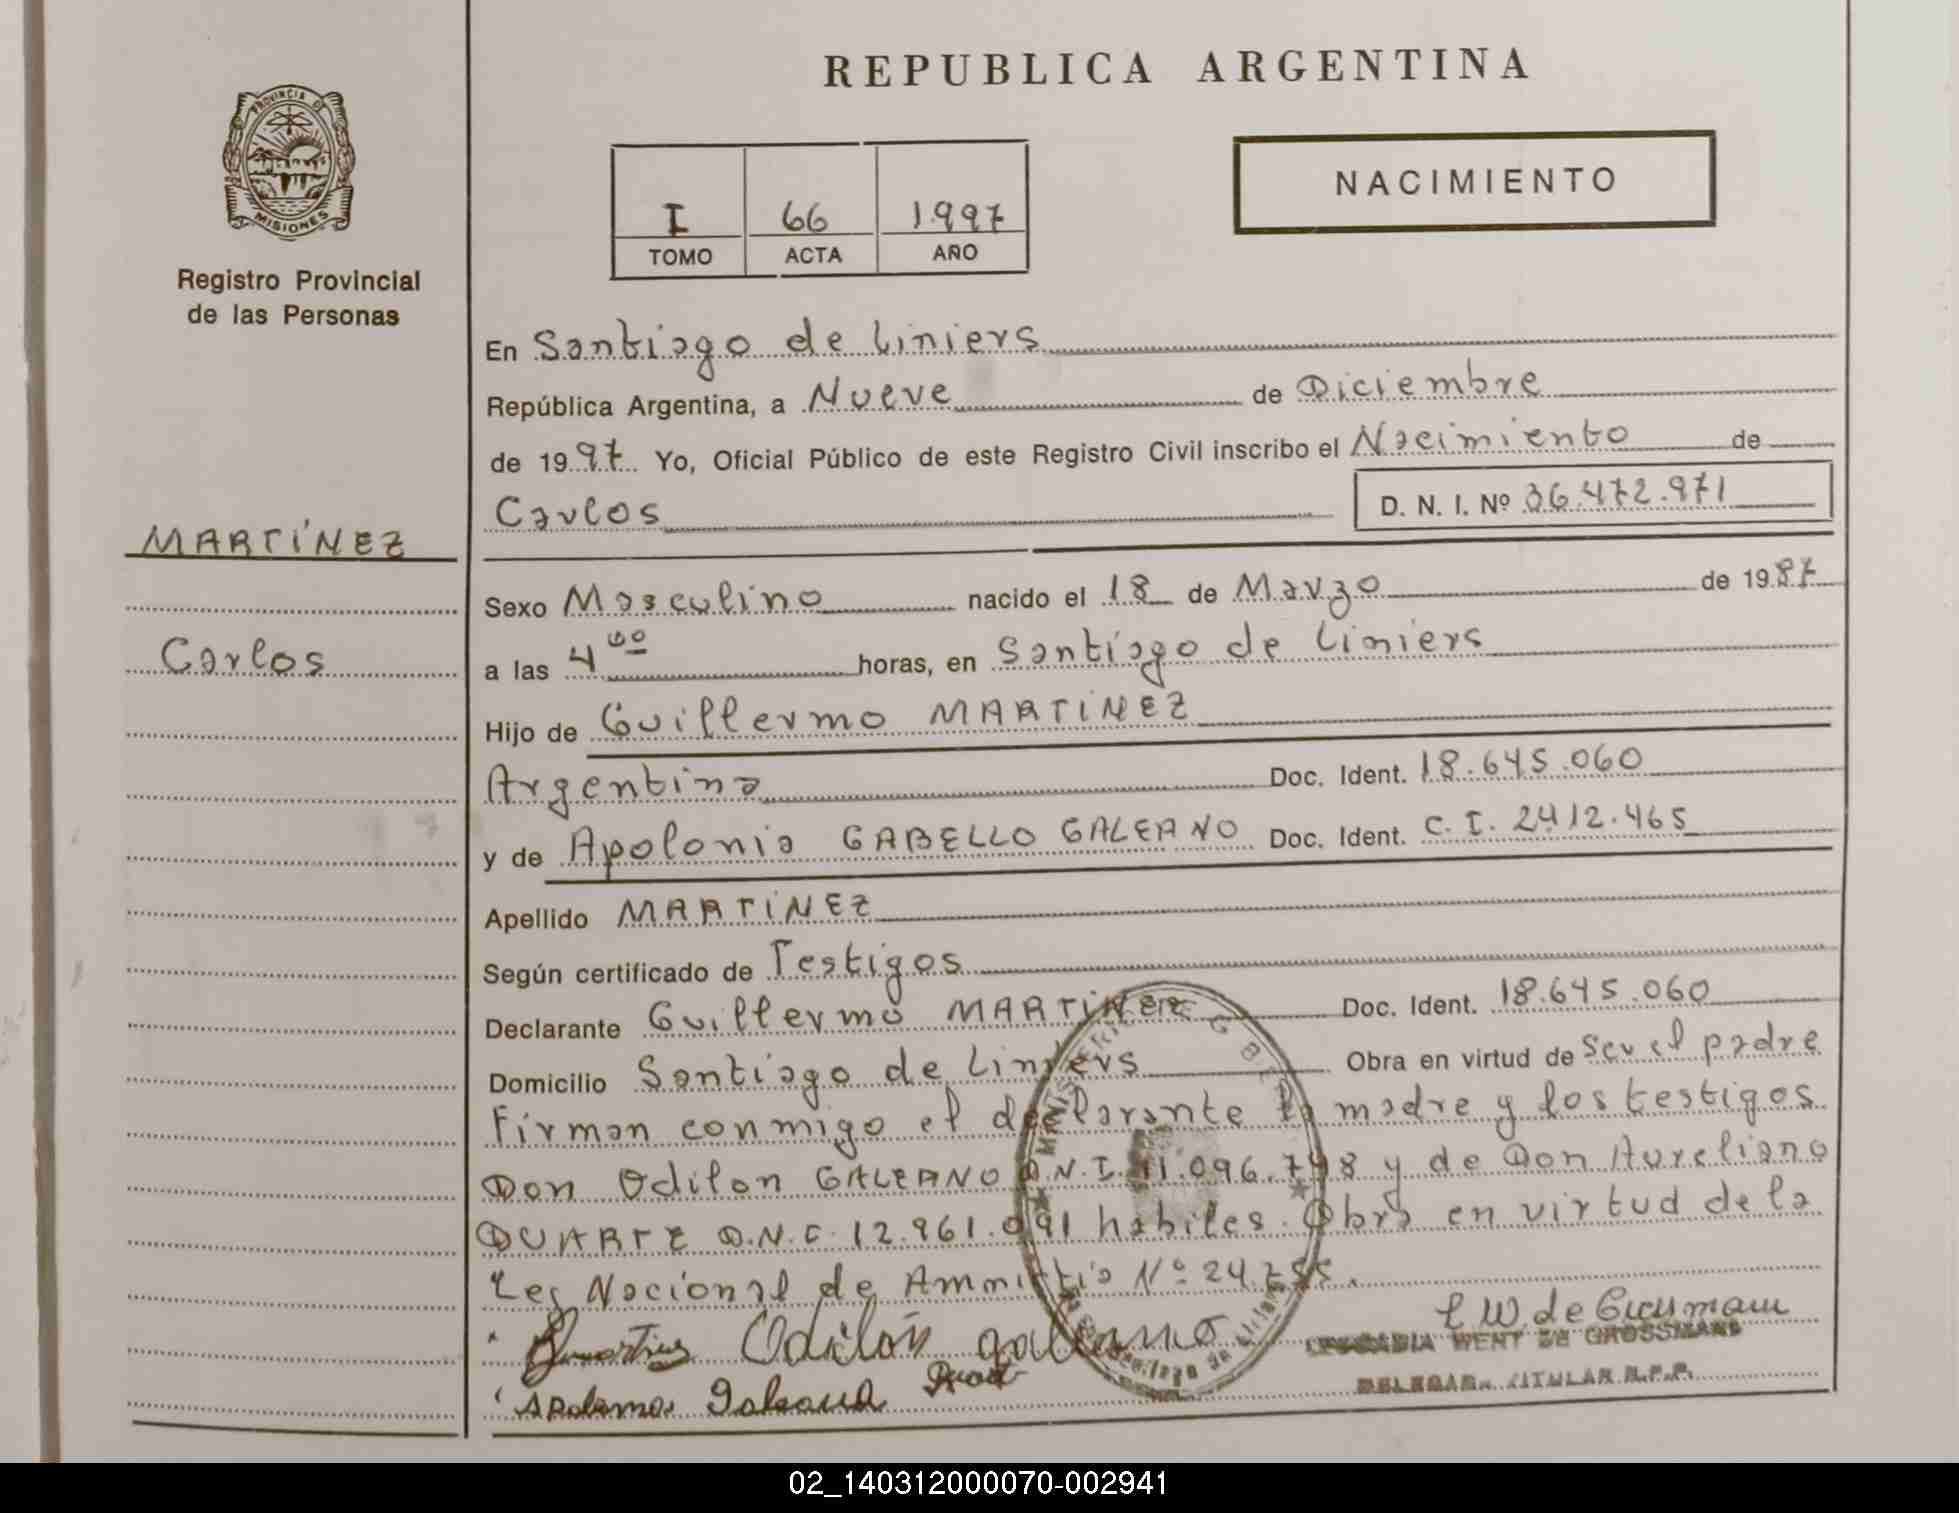 REPUBLICA ARGENTINA
PROVINCIA DE
MISIONES
Registro Provincial
de las Personas
I 66 1997
TOMO ACTA AÑO
NACIMIENTO
MARTÍNEZ
Carlos
En Santiago de Liniers
República Argentina, a Nueve de Diciembre
de 1997 Yo, Oficial Público de este Registro Civil inscribo el Nacimiento de
Carlos D. N. I. Nº 36.472.971
Sexo Masculino nacido el 18 de Marzo de 1987
a las 4 00 horas, en Santiago de Liniers
Hijo de Guillermo MARTÍNEZ
Argentina Doc. Ident. 18.645.060
y de Apolonia GABELLO GALEANO Doc. Ident. C.I. 2412.465
Apellido MARTÍNEZ
Según certificado de Testigos
Declarante Guillermo MARTÍNEZ Doc. Ident. 18.645.060
Domicilio Santiago de Liniers Obra en virtud de Ser el padre
Firman conmigo el declarante la madre y los testigos
Don Odilon GALEANO D.N.I. 11.096.748 y de Don Aureliano
DUARTE D.N.I. 12.961.091 habiles. Obra en virtud de la
Ley Nacional de Amnistia Nº 24.755.
Odilon galeano
WENT DE GROSSMANN
TITULAR R.P.P.
02_140312000070-002941